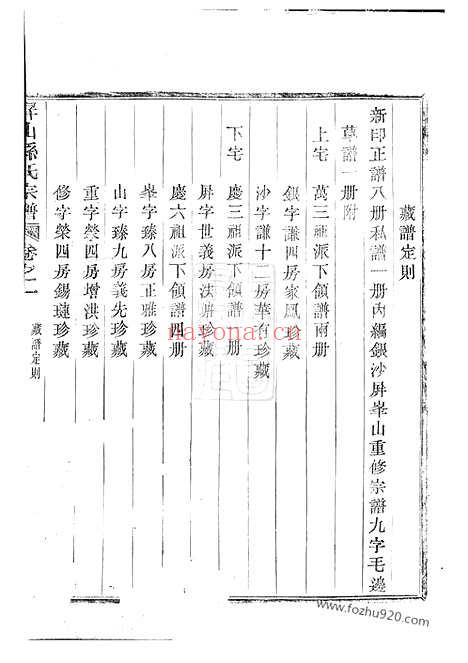 藏譜定則
新印正譜八册私譜一册內編銀沙屏峯山重修宗譜九字毛邊
草譜一册附
上宅 萬三祖派下領譜兩册
銀字謙四房家風珍藏
沙字謙十二房華有珍藏
下宅 慶三祖派下領譜一册
屏字世義房法 珍藏
慶六祖派下領譜四册
峯字臻八房正雅珍藏
山字臻九房義先珍藏
重字榮四房增洪珍藏
修字榮四房錫璉珍藏
屏山孫氏宗譜 卷之一 藏譜定則
nayona.cn
www.fozhu920.com